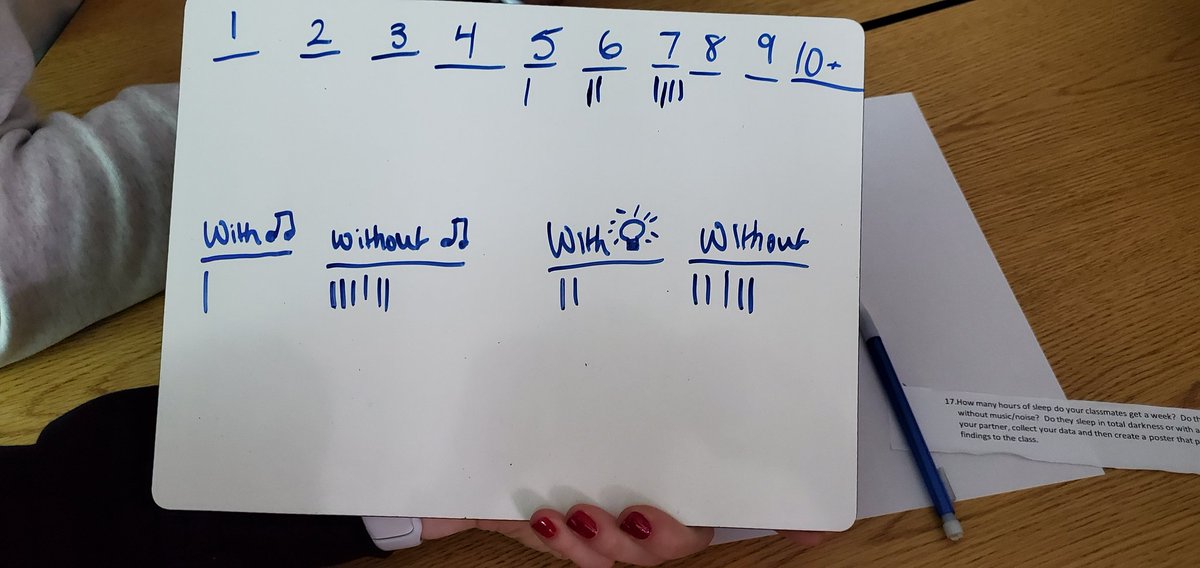 1 2 3 4 5 6 7 8 9 10+
With without With Without
17.How many hours of sleep do your classmates get a week? Do th
without music/noise? Do they sleep in total darkness or with a
your partner, collect your data and then create a poster that p
findings to the class.